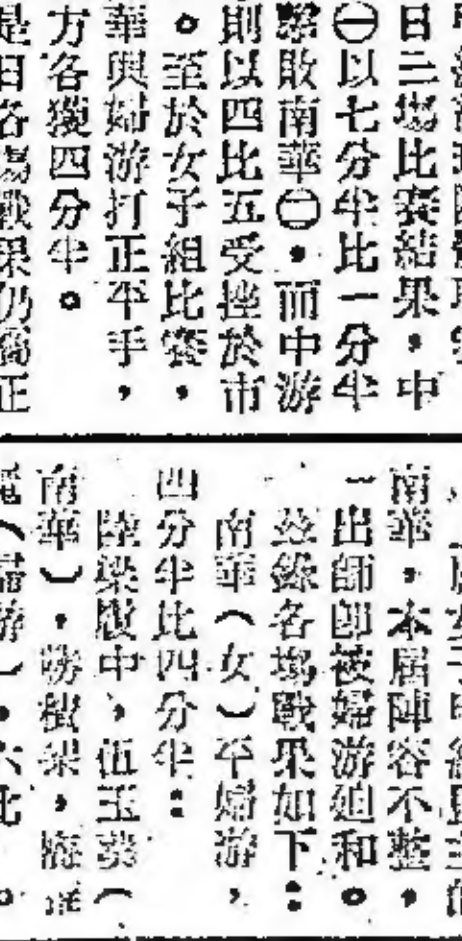 日二場比賽結果，中
㊀以七分半比一分半
擊敗南華㊁。而中游
則以四比五受挫於市
。至於女子組比賽，
華與婦游打正平手，
方各獲四分半。
是日各場戰果仍屬正
南華，本屆陣容不整，
一出師即被婦游迫和。
茲錄各場戰果如下：
南華（女）平婦游，
四分半比四分半：
陸梁履中、伍玉葵（
南華），勝
（婦游），六比